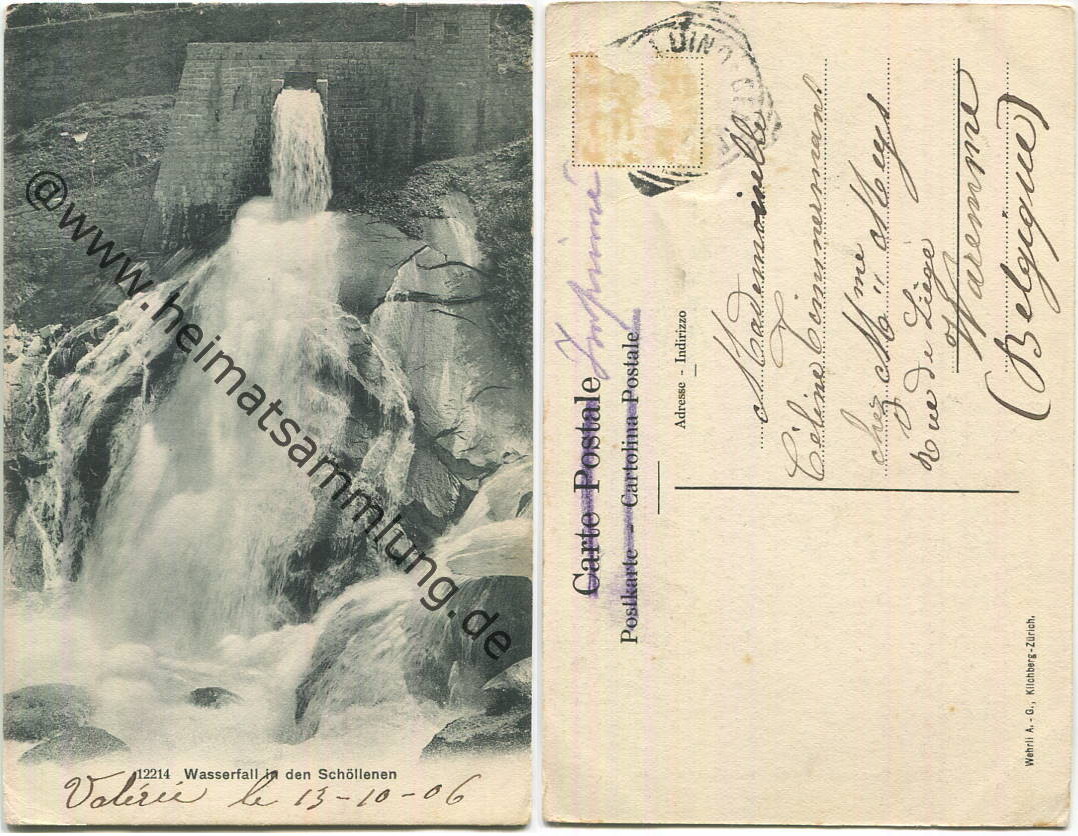 @www.heimatsammlung.de
12214 Wasserfall in den Schöllenen
Valérie le 13-10-06
LUINO
Imprimé
Carte Postale
Postkarte - Cartolina Postale
Adresse - Indirizzo
Mademoiselle
Céline Timmerman.
chez Mme Meys
Rue de Liège
Waremme
(Belgique)
Wehrli A.-G., Kilchberg-Zürich.